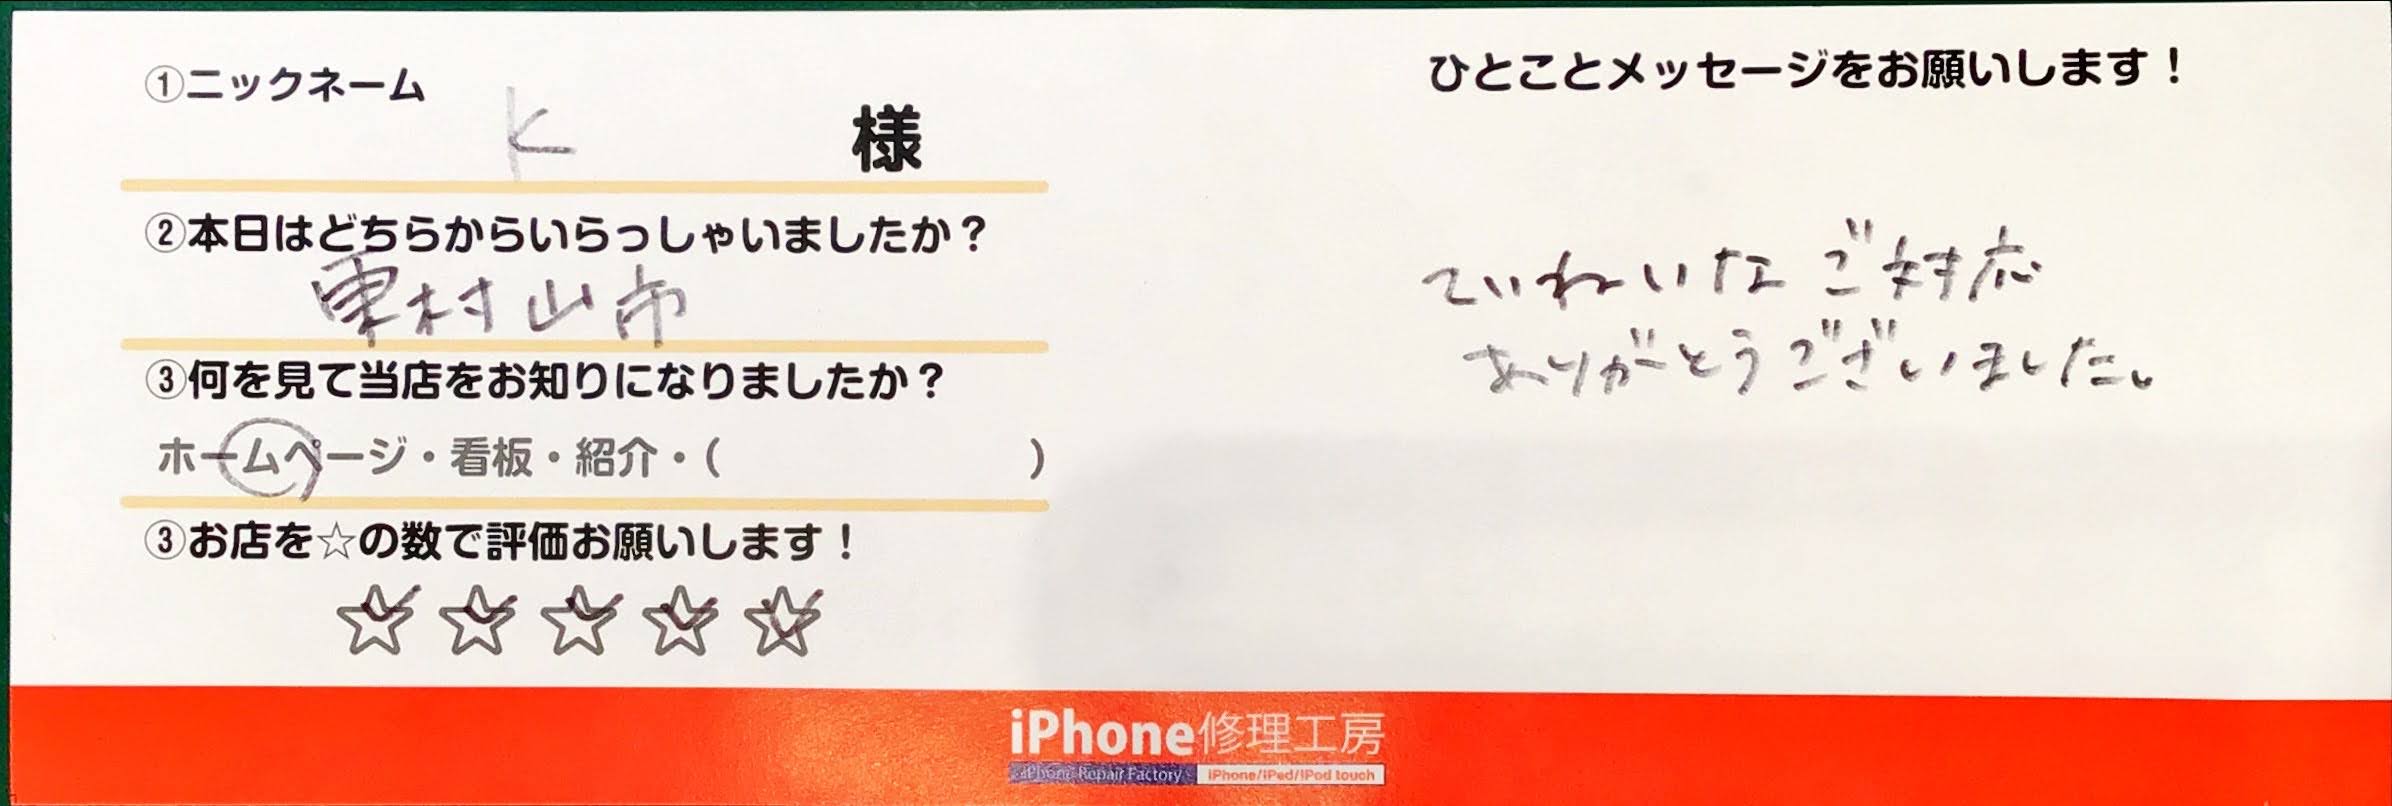 ①ニックネーム
K 様
②本日はどちらからいらっしゃいましたか？
東村山市
③何を見て当店をお知りになりましたか？
ホームページ・看板・紹介・(　　　)
③お店を☆の数で評価お願いします！
☆☆☆☆☆
ひとことメッセージをお願いします！
ていねいなご対応
ありがとうございました。
iPhone修理工房
iPhone Repair Factory iPhone/iPad/iPod touch